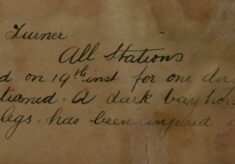 Turner
All Stations
d on 19th inst for one da
tianed. A dark bay ho
legs. has been injured